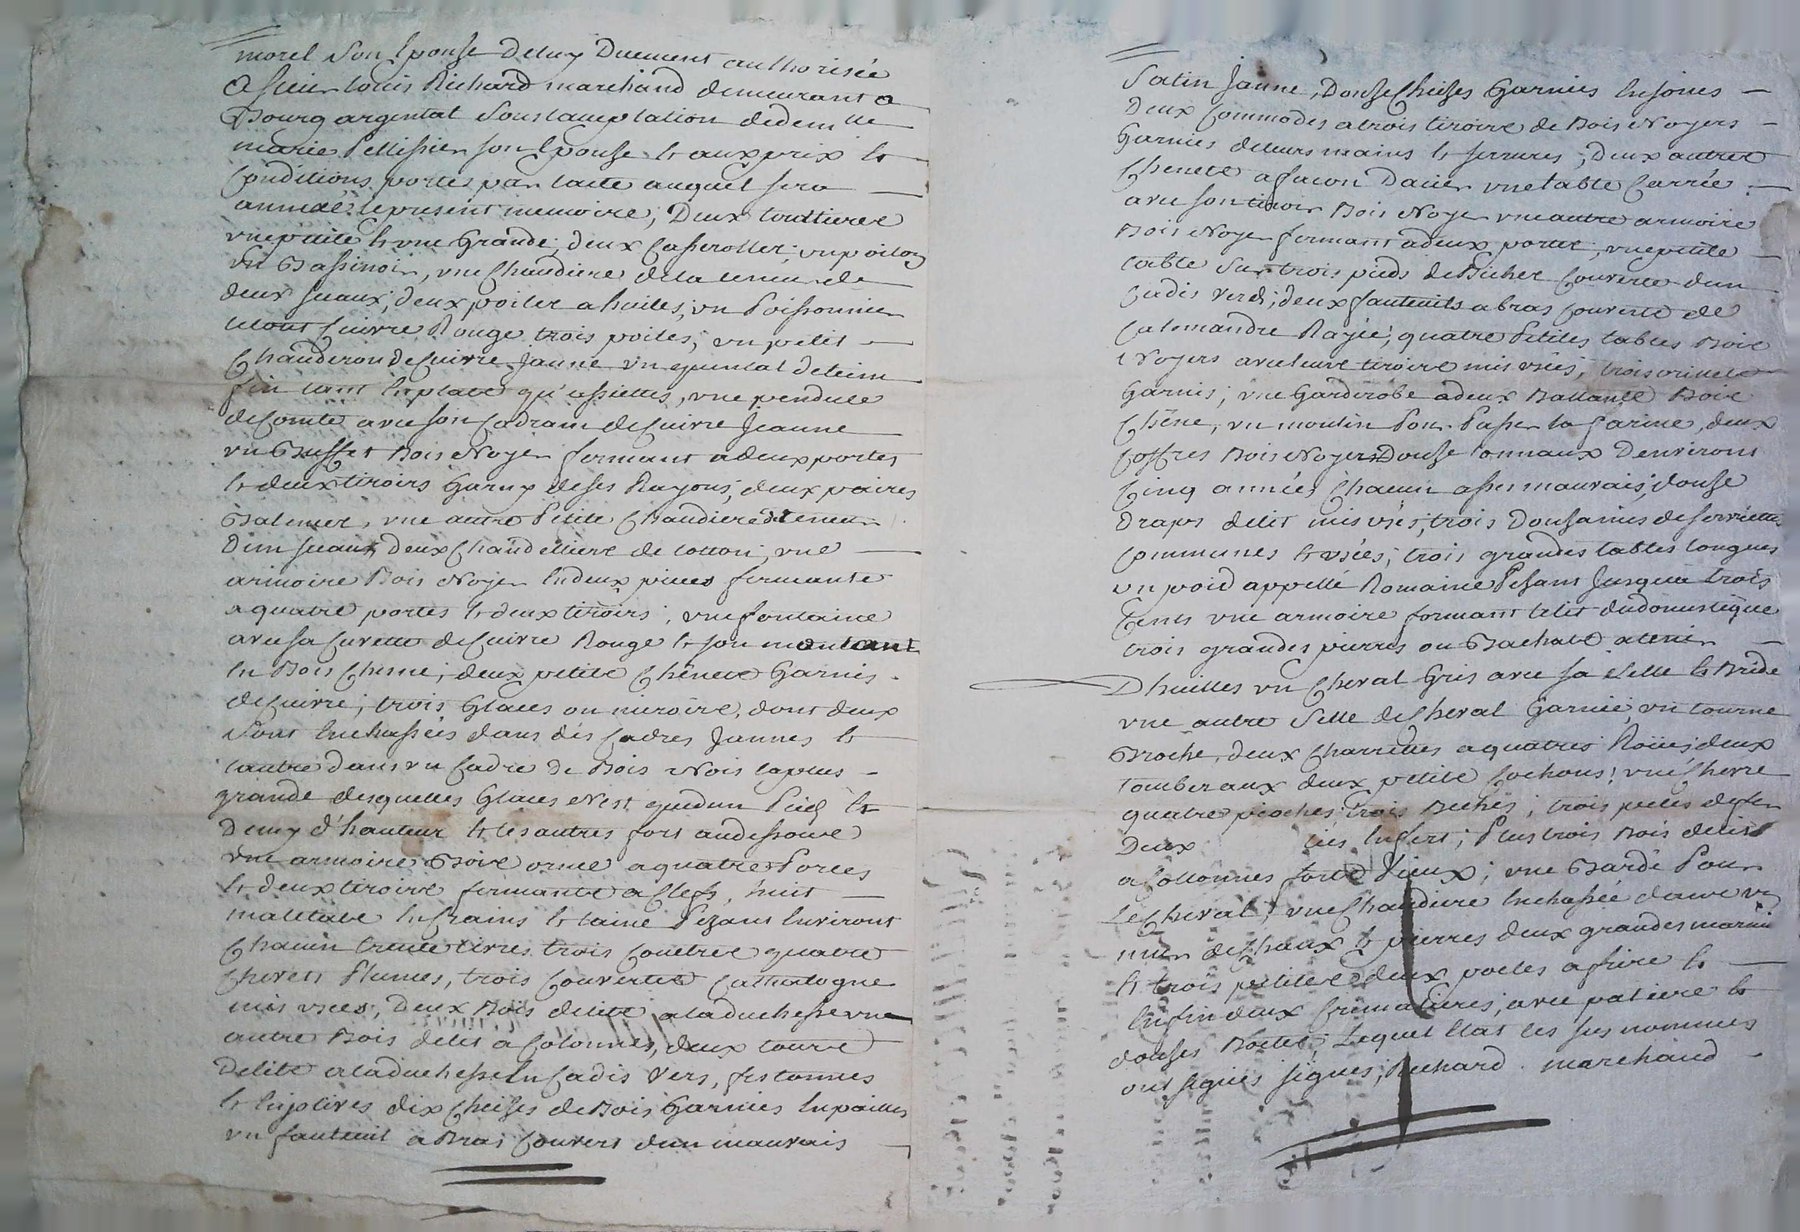 morel son Epouse deluy Duement authorisée
a sieur louis Richard marchand demeurant a
Bourg argental sous lacceptation de dem lle
marie Pellissier son Epouse et aux prix et
Conditions portés par lacte auquel sera
annexé le present memoire; Deux tourtieres
une petite et une Grande; deux Casserolles; un poilon
un Bassinoir, une Chaudiere de la teneur de
deux seaux; deux poiles a huilles; un Poissonnier
le tout Cuivre Rouge trois poiles; un petit
Chauderon de Cuivre Jaune un quintal deteim
fin tant En plats qu'assiettes, une pendule
de Comté avec son Cadram de Cuivre Jeaune
un Buffet Bois Noyer fermant a deux portes
et deux tiroirs Garny de ses Rayons; deux paires
Balences, une autre Petite Chaudiere de teneur
Dun seaux, deux Chandelliers de lotton; une
armoire Bois Noyer En deux pieces fermante
a quatre portes et deux tiroirs; une fontaine
avec sa Cuvette de Cuivre Rouge et son montant
En Bois Chesne; deux petits Chênets Garnis
de Cuivre; trois Glaces ou miroirs, dont deux
sont Enchassées dans dés Cadres Jaunes et
lautre dans un Cadre de Bois Nois la plus
grande desquelles Glaces Nest que dun Pied et
Demy d'hauteur et les autres fort audessous
une armoire Bois orme a quatre Portes
et deux tiroirs fermante a Clefs, huit
matelats En Crains et laine Pezant Environt
Chacun trente livres trois Couetres quatre
Chevets Plumes, trois Couvertes Cathalogne
mis usées; Deux Bois de lits a la duchesse une
autre Bois de lit a Colonnes, deux tours
De lits a la duchesse En Cadis Vers, festonnes
et Enjolivés dix Cheises de Bois Garnies En pailles
un fauteuil a Bras Couvert dun mauvais
Satin Jaune; Douse Cheises Garnies En joncs
Deux Commodes a trois tiroirs de Bois Noyers
Garnies de leurs mains et serrures; Deux autres
Chenets a facon Dacier une table Carrée
avec son tiroir Bois Noyer une autre armoire
Bois Noyer fermant a deux portes; une petite
table sur trois pieds de Biche Couverte dun
Cadis verd; deux fauteuils a bras Couverts de
Calemandre Rayée; quatre Petites tables Bois
Noyers avec leurs tiroirs mis usés; trois
Garnis; une Garderobe a deux Battants Bois
Chêne, un moulin Pour Passer la farine, deux
Coffres Bois Noyers Douse tonnaux Denvirons
Cinq années Chacun asses mauvais; douse
Draps de lit mis usés; trois Dousaines de serviettes
Communes et usées; trois grandes tables longues
un poid appellé Romaine Pesant Jusqua trois
Cents une armoire formant le lit du domestique
trois grandes pierres ou Bachats a tenir
Dhuilles un Cheval Gris avec sa selle et Bride
une autre selle de Cheval Garnie, un tourne
Broche, deux Charrettes a quatres Roües; deux
tomberaux deux petits Cochons; une Chevre
quatre pioches; trois Beches; trois peles de fer
Deux En fert; Plus trois Bois de lits
a Collonnes fort Vieux; une Barde Pour
Le Cheval; une Chaudiere Enchassée dans un
mur de Chaux et pierres deux grandes
et trois petites deux poeles a frire et
Enfin deux Cremalieres; avec
douses Boetes; Lequel Etat les sus nommes
ont signés signes; Richard . marchand